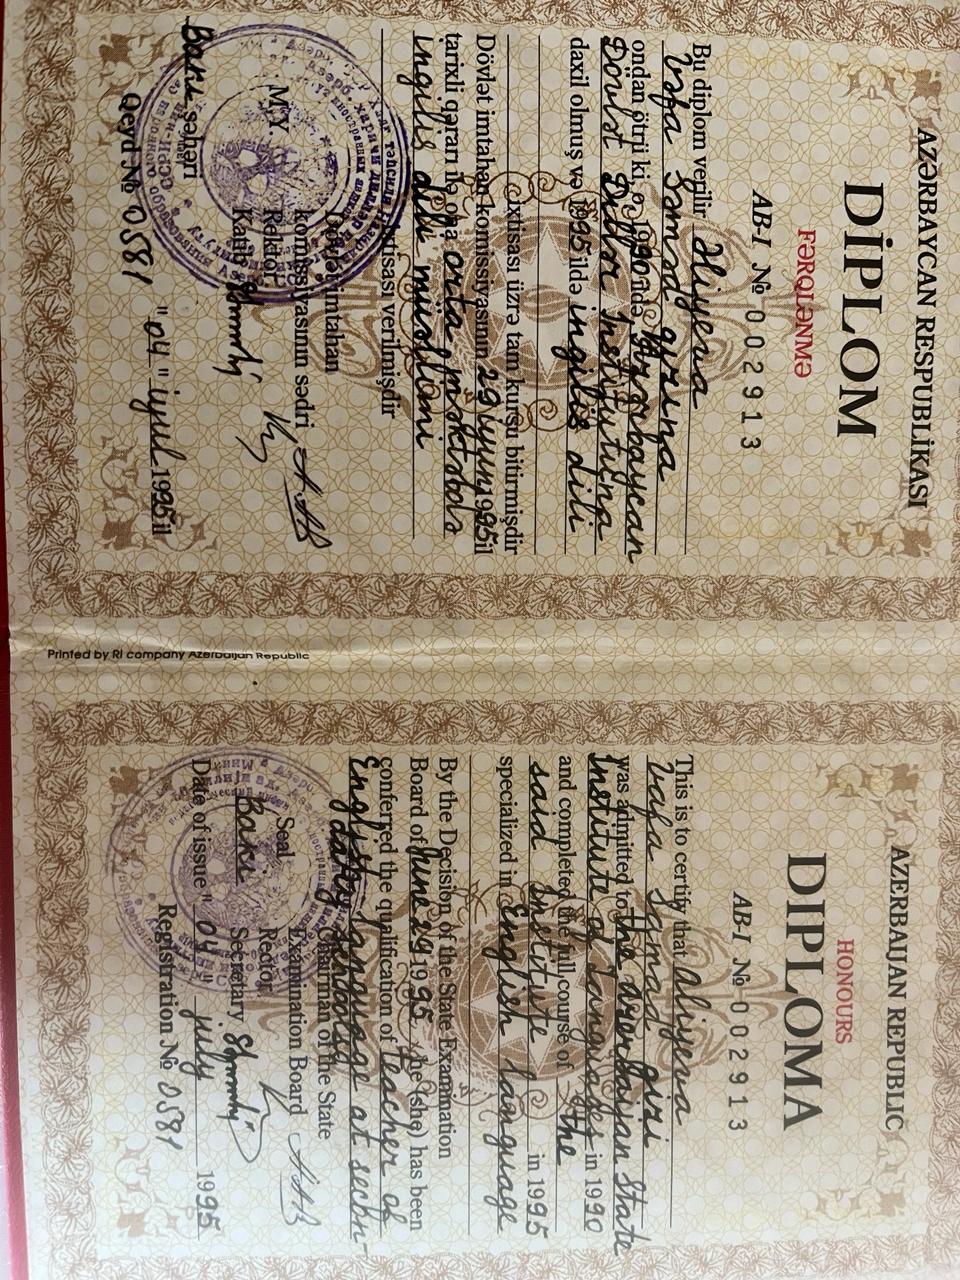 AZƏRBAYCAN RESPUBLİKASI
DİPLOM
FƏRQLƏNMƏ
AB-I № 002913
Bu diplom verilir Əliyeva
Vəfa Səməd qızına
ondan ötrü ki, o, 1990 ildə Azərbaycan
Dövlət Dillər İnstitutuna
daxil olmuş və 1995 ildə ingilis dili
ixtisası üzrə tam kursu bitirmişdir
Dövlət imtahan komissiyasının 29 iyun 1995 il
tarixli qərarı ilə ona orta məktəbdə
ingilis dili müəllimi
ixtisası verilmişdir
Dövlət imtahan
komissiyasının sədri
M.Y. Rektor
Katib
Bakı şəhəri "04" iyul 1995 il
Qeyd № 0581
Printed by RI company Azerbaijan Republic
AZERBAIJAN REPUBLIC
HONOURS
DIPLOMA
AB-I № 002913
This is to certify that Aliyeva
Vafa Samad gizi
was admitted to the Azerbaijan State
Institute of Languages in 1990
and completed the full course of the
said Institute in 1995
specialized in English language
By the Decision of the State Examination
Board of June 29 1995 he (she) has been
conferred the qualification of teacher of
English language at secon-
dary schools
Chairman of the State
Examination Board
Seal Rector
Baku Secretary
Date of issue "04" july 1995
Registration № 0581